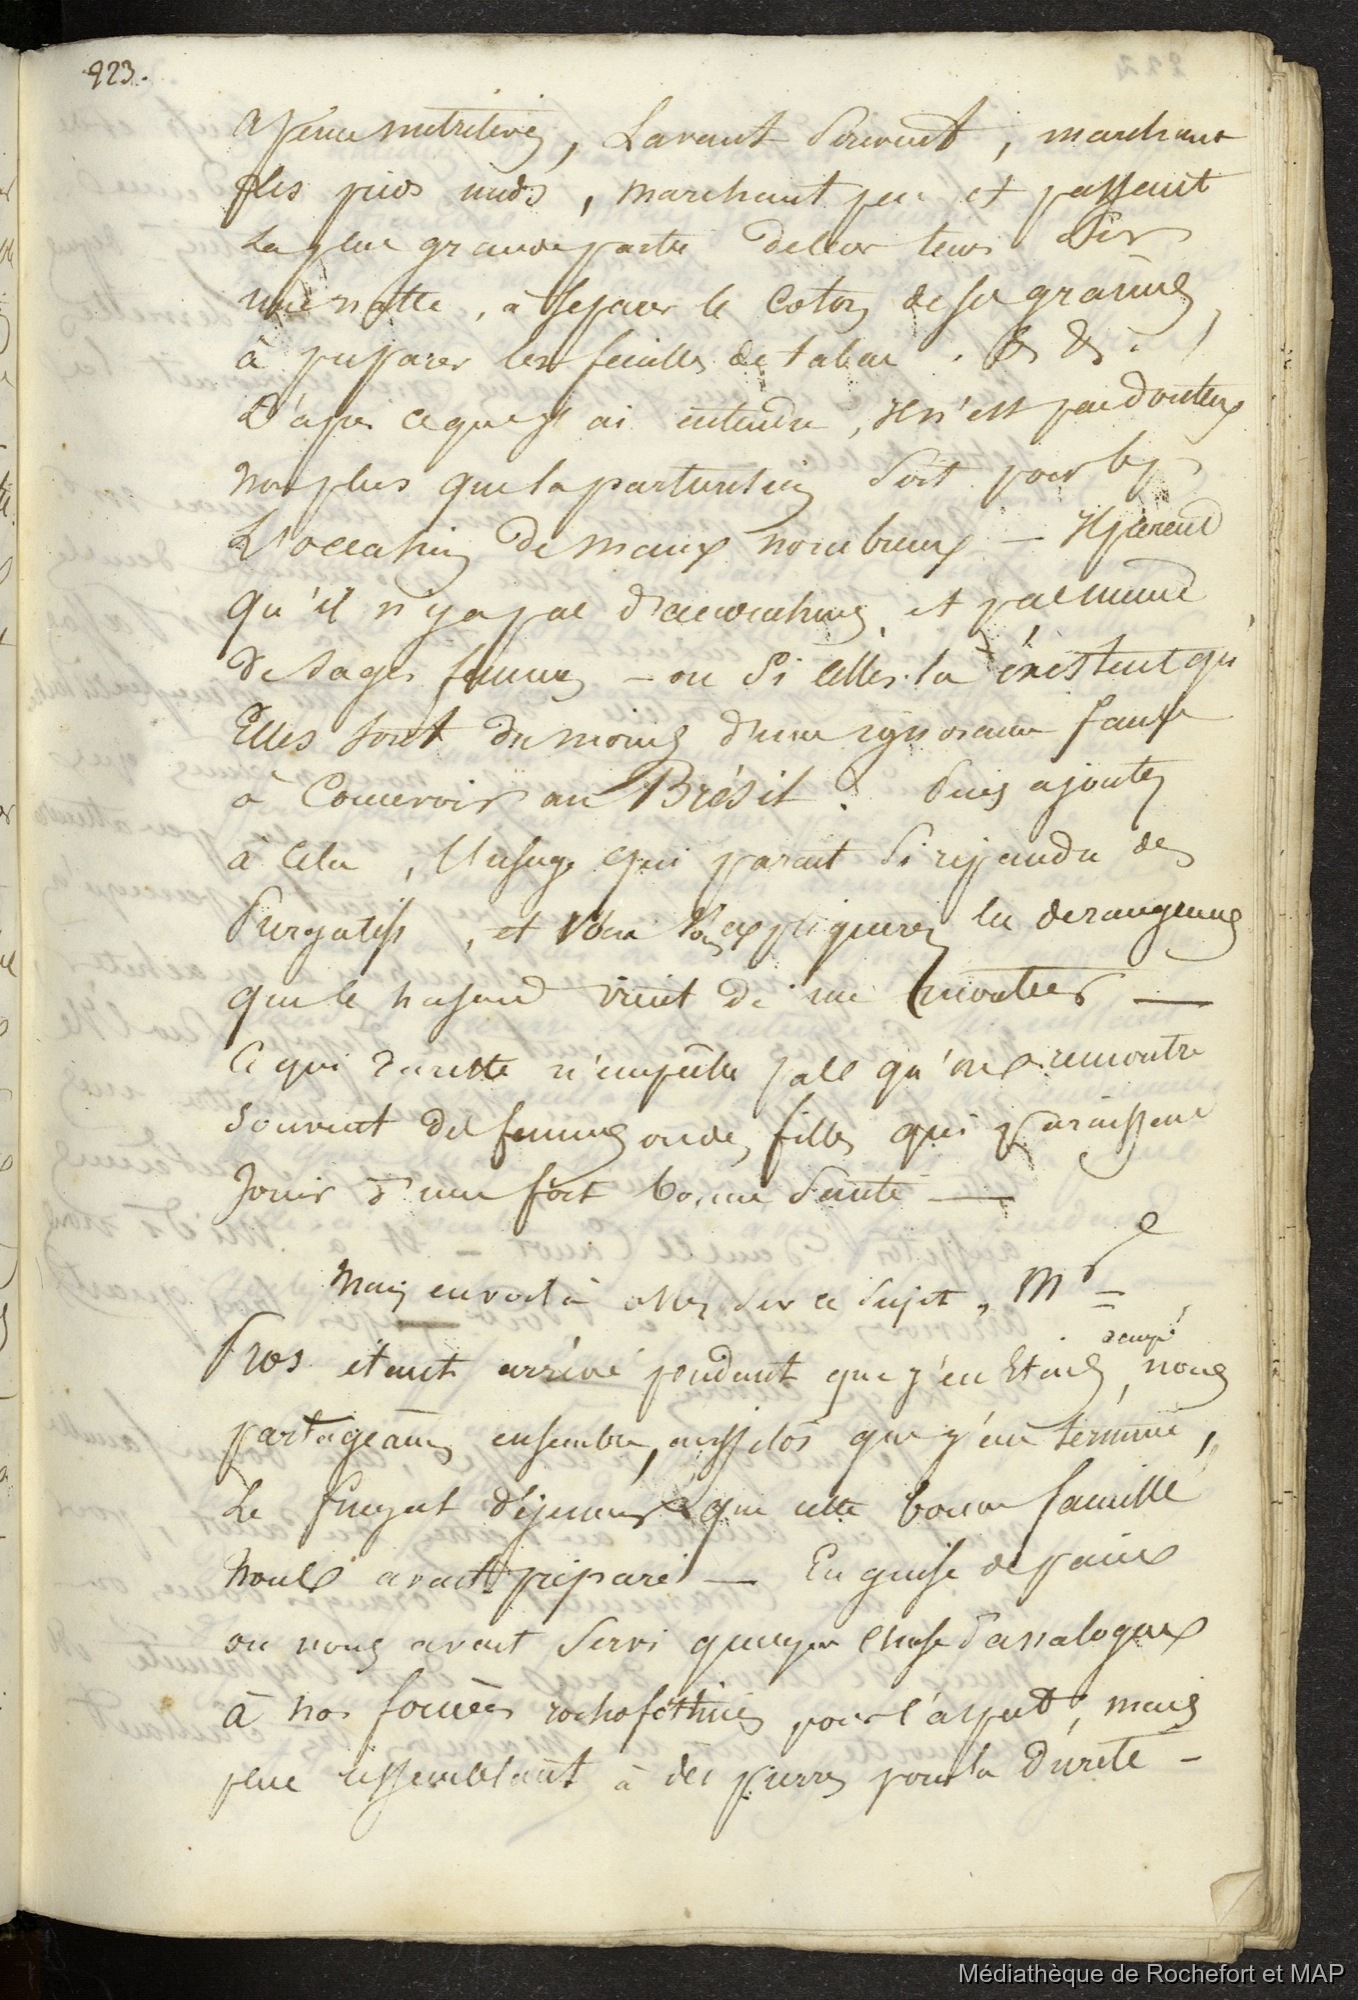 223.
à peine nutritive, Lavant Souvent, marchant
Les pieds nuds, marchant peu et passant
La plus grande partie de leur tems Sur
une natte, à Séparer le Coton de ses graines,
à préparer les feuilles de tabac. & &.
D'après ce que j'ai entendu, Il n'est pas douteux
Non plus que la parturition Soit pour
L'occasion de maux nombreux — Il parait
qu'il n'y a pas d'accoucheurs, et pas même
de Sages femmes — ou Si elles existent
Elles sont du moins d'une ignorance
à Concevoir au Brésil. Puis ajoutez
à Cela, l'usage qui parait Si répandu des
Purgatifs, et Vous Vous expliquerez les derangemens
que le hasard vient de me montrer —
Ce qui du reste n'empêche pas qu'on rencontre
Souvent des femmes ou des filles qui paraissent
Jouir d'une fort bonne Santé —
Mais en voilà assez Sur ce Sujet, Mr
Pros étant arrivé pendant que j'en étais occupé, nous
partageâmes ensemble, aussitôt que j'eus terminé,
Le frugal déjeuner que cette bonne famille
Nous avait préparé — En guise de pain
on nous avait Servi quelque chose d'analogue
à nos fouées rochefortines pour l'aspect, mais
plus ressemblant à des pierres pour la dureté —
Médiathèque de Rochefort et MAP